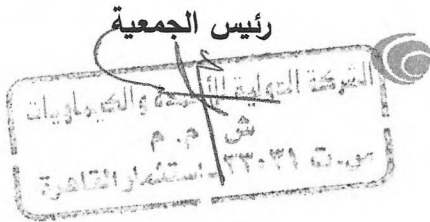 رئيس الجمعية
الشركة الدولية للأسمدة والكيماويات
ش . م . م
س.ت ٢٣٠٣١ - استثمار القاهرة